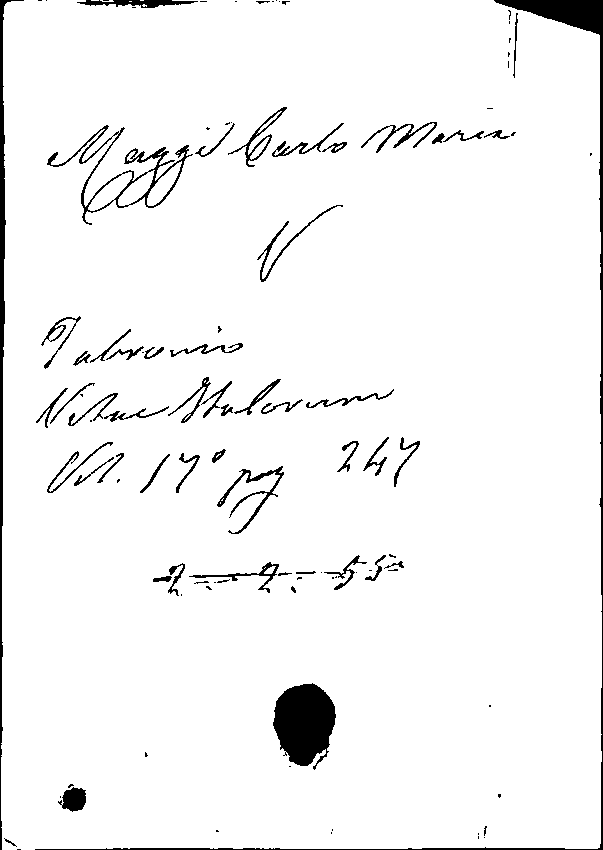 Maggi Carlo Maria
V
Fabronio
Vitae Italorum
Vol. 17° pag 247
2. 2. 55